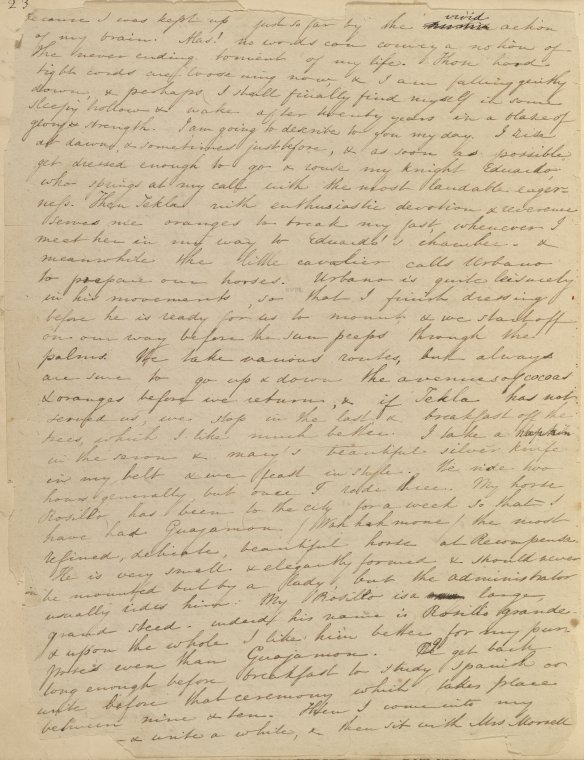 23
because I was kept up just so far by the vivid action
of my brain. Alas! no words can convey a notion of
the never ending torment of my life. Those hard
tight cords are loosening now & I am falling gently
down, & perhaps I shall finally find myself in some
sleepy hollow & wake after twenty years in a blaze of
glory & strength. I am going to describe to you my day. I rise
at dawn, & sometimes just before, & as soon as possible
get dressed enough to go & rouse my knight Eduardo
who springs at my call with the most laudable eager-
ness. Then Tekla with enthusiastic devotion & reverence
serves me oranges to break my fast, whenever I
meet her in my way to Eduardo's chamber. &
meanwhile the little cavalier calls Urbano
to prepare our horses. Urbano is quite leisurely
in his movements, so that I finish dressing
before he is ready for us to mount & we start off
on our way before the sun peeps through the
palms. We take various routes, but always
are sure to go up & down the avenues of cocoas
& oranges before we return, & if Tekla has not
served us, we stop in the last & breakfast off the
trees, which I like much better. I take a napkin
in the seron & mary's beautiful silver knife
in my belt & we feast in style. We ride two
hours generally but once I rode three. My horse
Rosillo has been to the city for a week so that I
have had Guajamon / Wah hah mone / the most
refined, delicate, beautiful horse at Recompensa.
He is very small & elegantly formed & should never
be mounted but by a lady, but the administrator
usually rides him. My Rosillo is a large,
grand steed. indeed his name is Rosillo grande.
& upon the whole I like him better for my pur
poses even than Guajamon. We get back
long enough before breakfast to study Spanish or
write before that ceremony which takes place
between nine & ten. Then I come into my
& write a while, & then sit with Mrs Morrell